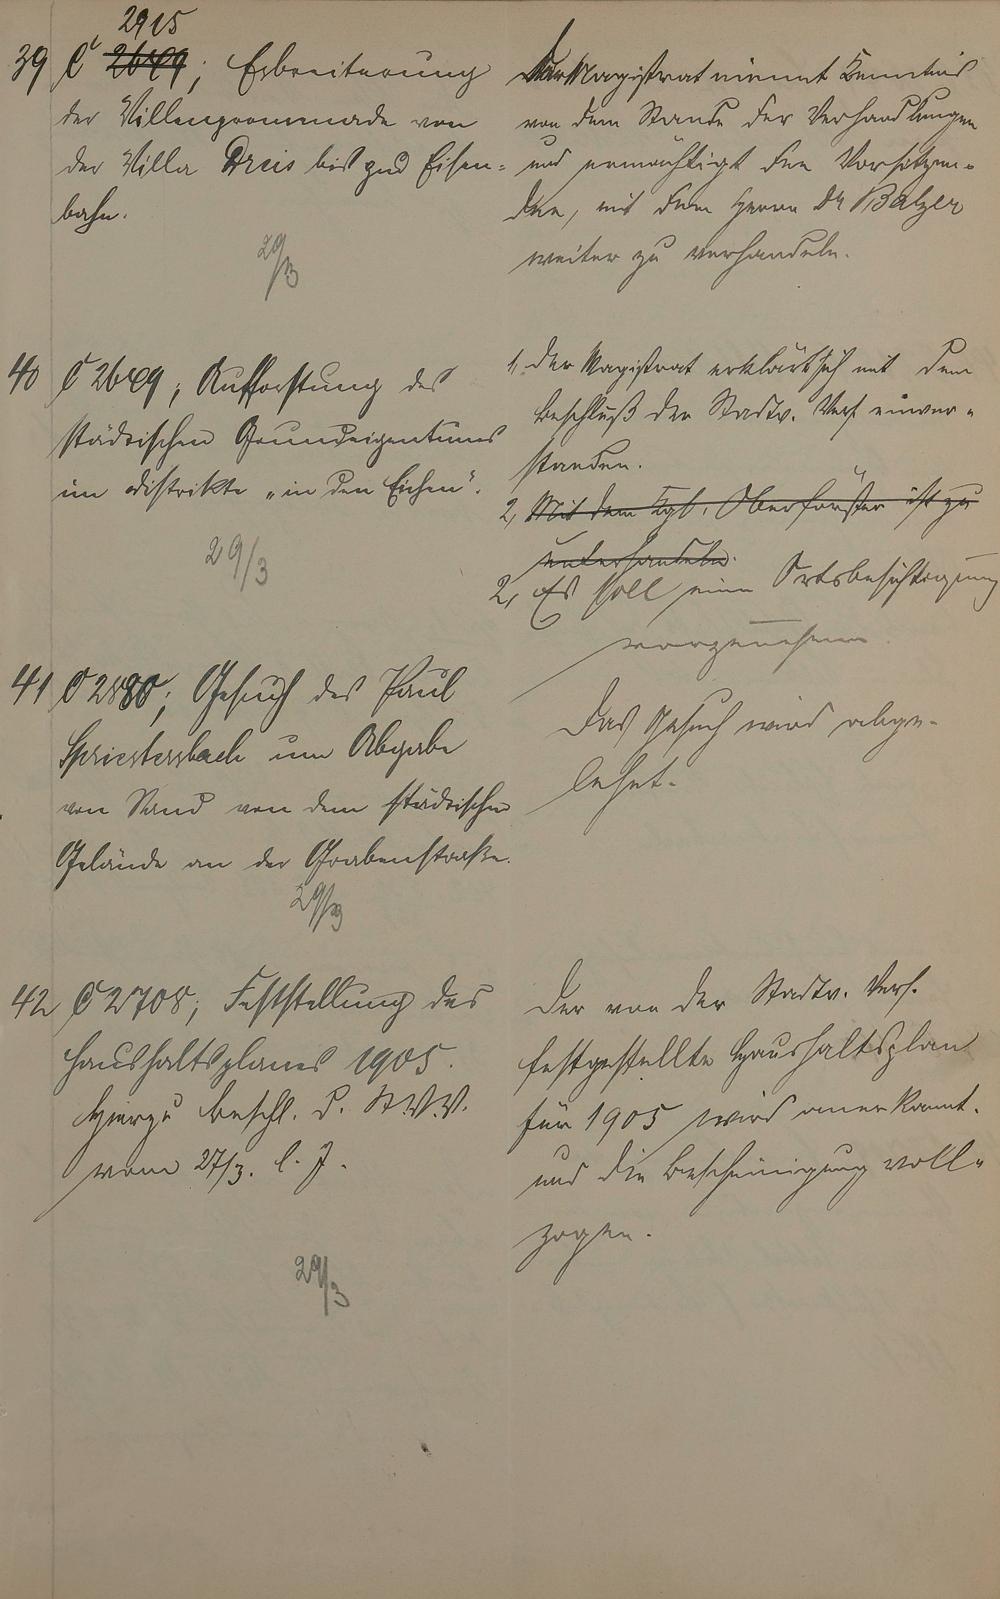 2915
39 C 2649; Erbreiterung
der Villenpromenade von
der Villa Dreis bis zur Eisen=
bahn.
29/3
Der Magistrat nimmt Kenntnis
von dem Stande der Verhandlungen
und ermächtigt den Vorsitzen=
den, mit dem Herrn Dr Balzer
weiter zu verhandeln.
40 C 2649; Aufforstung des
städtischen Grundeigentums
im Distrikte „in den Eichen".
29/3
1, Der Magistrat erklärt sich mit dem
Beschluß der Stadtv. Vers. einver=
standen.
2, Mit dem Kgl. Oberförster ist zu
unterhandeln.
2, Es soll eine Ortsbesichtigung
vorgenommen
41 C 2880; Gesuch des Paul
Spriestersbach um Abgabe
von Sand von dem städtischen
Gelände an der Grabenstraße.
29/3
Das Gesuch wird abge-
lehnt.
42 C 2708; Feststellung des
Haushaltsplanes 1905.
Hierzu Beschl. d. St.V.V.
vom 27/3. l. J.
29/3
Der von der Stadtv. Vers.
festgestellte Haushaltsplan
für 1905 wird anerkannt.
und die Bescheinigung voll=
zogen.